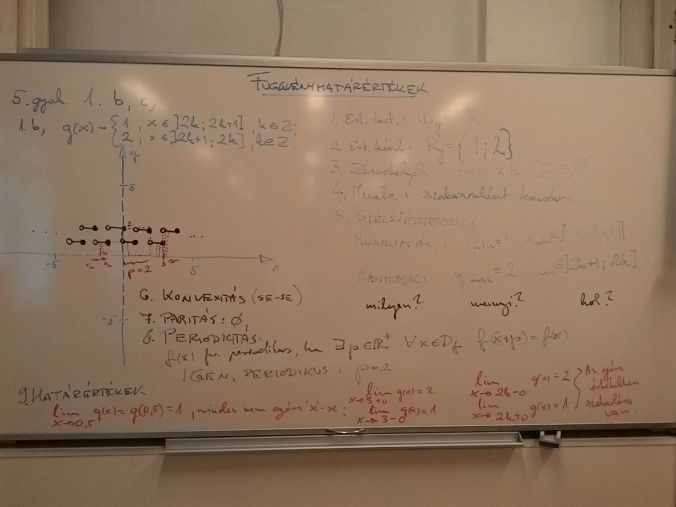 FÜGGVÉNYHATÁRÉRTÉKEK
5. gyak. 1. b, c,
1. b, g(x) = { 1 , x ∈ ]2k; 2k+1] , k ∈ Z;
2 , x ∈ ]2k+1; 2k] , k ∈ Z.
y
5
2
... ...
-5 3 5 x
p=2
-5
1. Ért. tart.: Dg = R
2. Ért. kész.: Rg = {1; 2}
3. Zérushelyek
4. Menete: szakaszonként konstans
5. SZÉLSŐÉRTÉKEK:
MINIMUM
MAXIMUMOK: y max = 2 ]2k+1; 2k]
milyen? mennyi? hol?
6. KONVEXITÁS (SE-SE)
7. PARITÁS: Ø
8. PERIODICITÁS:
f(x) fv. periodikus, ha ∃ p ∈ R⁺ ∀ x ∈ Df f(x+p) = f(x)
IGEN, PERIODIKUS: p=2
9. HATÁRÉRTÉKEK
lim x→0,5 g(x) = g(0,5) = 1 , minden nem egész "x"-re;
lim x→3+0 g(x) = 2
lim x→3-0 g(x) = 1
lim x→2k-0 g(x) = 2
lim x→2k+0 g(x) = 1
Az egész
értékekben
szakadása
van.